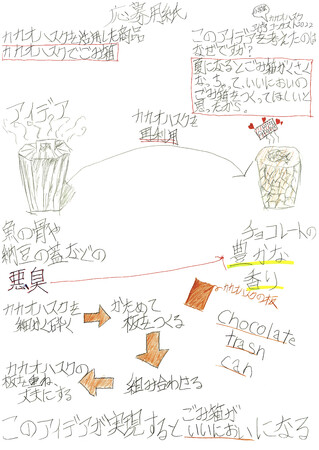 応募用紙
カカオハスク
コンテスト2022
カカオハスクを活用した商品
カカオハスクでごみ箱
このアイデアを考えたのは
なぜですか?
夏になるとごみ箱がくさく
なって、いいにおいの
ごみ箱をつくってほしいと
思ったから。
アイデア
カカオハスクを
再利用
魚の骨や
納豆の蓋などの
悪臭
チョコレートの
豊かな
香り
カカオハスクの板
カカオハスクを
細かく砕く
かためて
板をつくる
Chocolate
trash
can
カカオハスクの
板を重ね、
丈夫にする
組み合わせる
このアイデアが実現するとごみ箱が
いいにおいになる